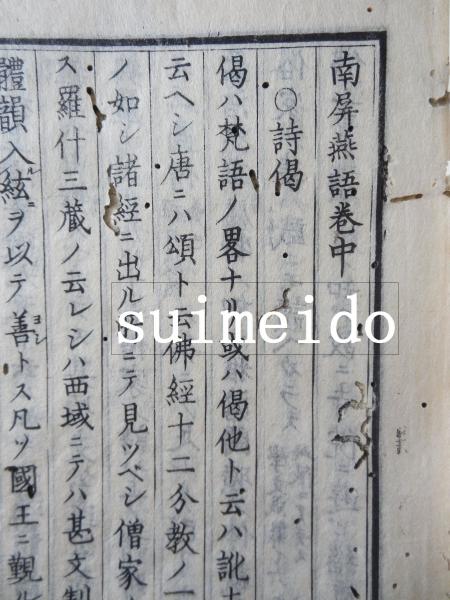 南屏燕語巻中
○詩偈
偈ハ梵語ノ畧ナリ或ハ偈他ト云ハ訛ナ
云ヘシ唐ニハ頌ト云佛經十二分教ノ一
ノ如シ諸經ニ出ル ニテ見ツベシ僧家
ス羅什三蔵ノ云レシハ西域ニテハ甚文制
體韻入絃ニヲ以テ善ヨシトス凡ソ國王ニ覲
suimeido